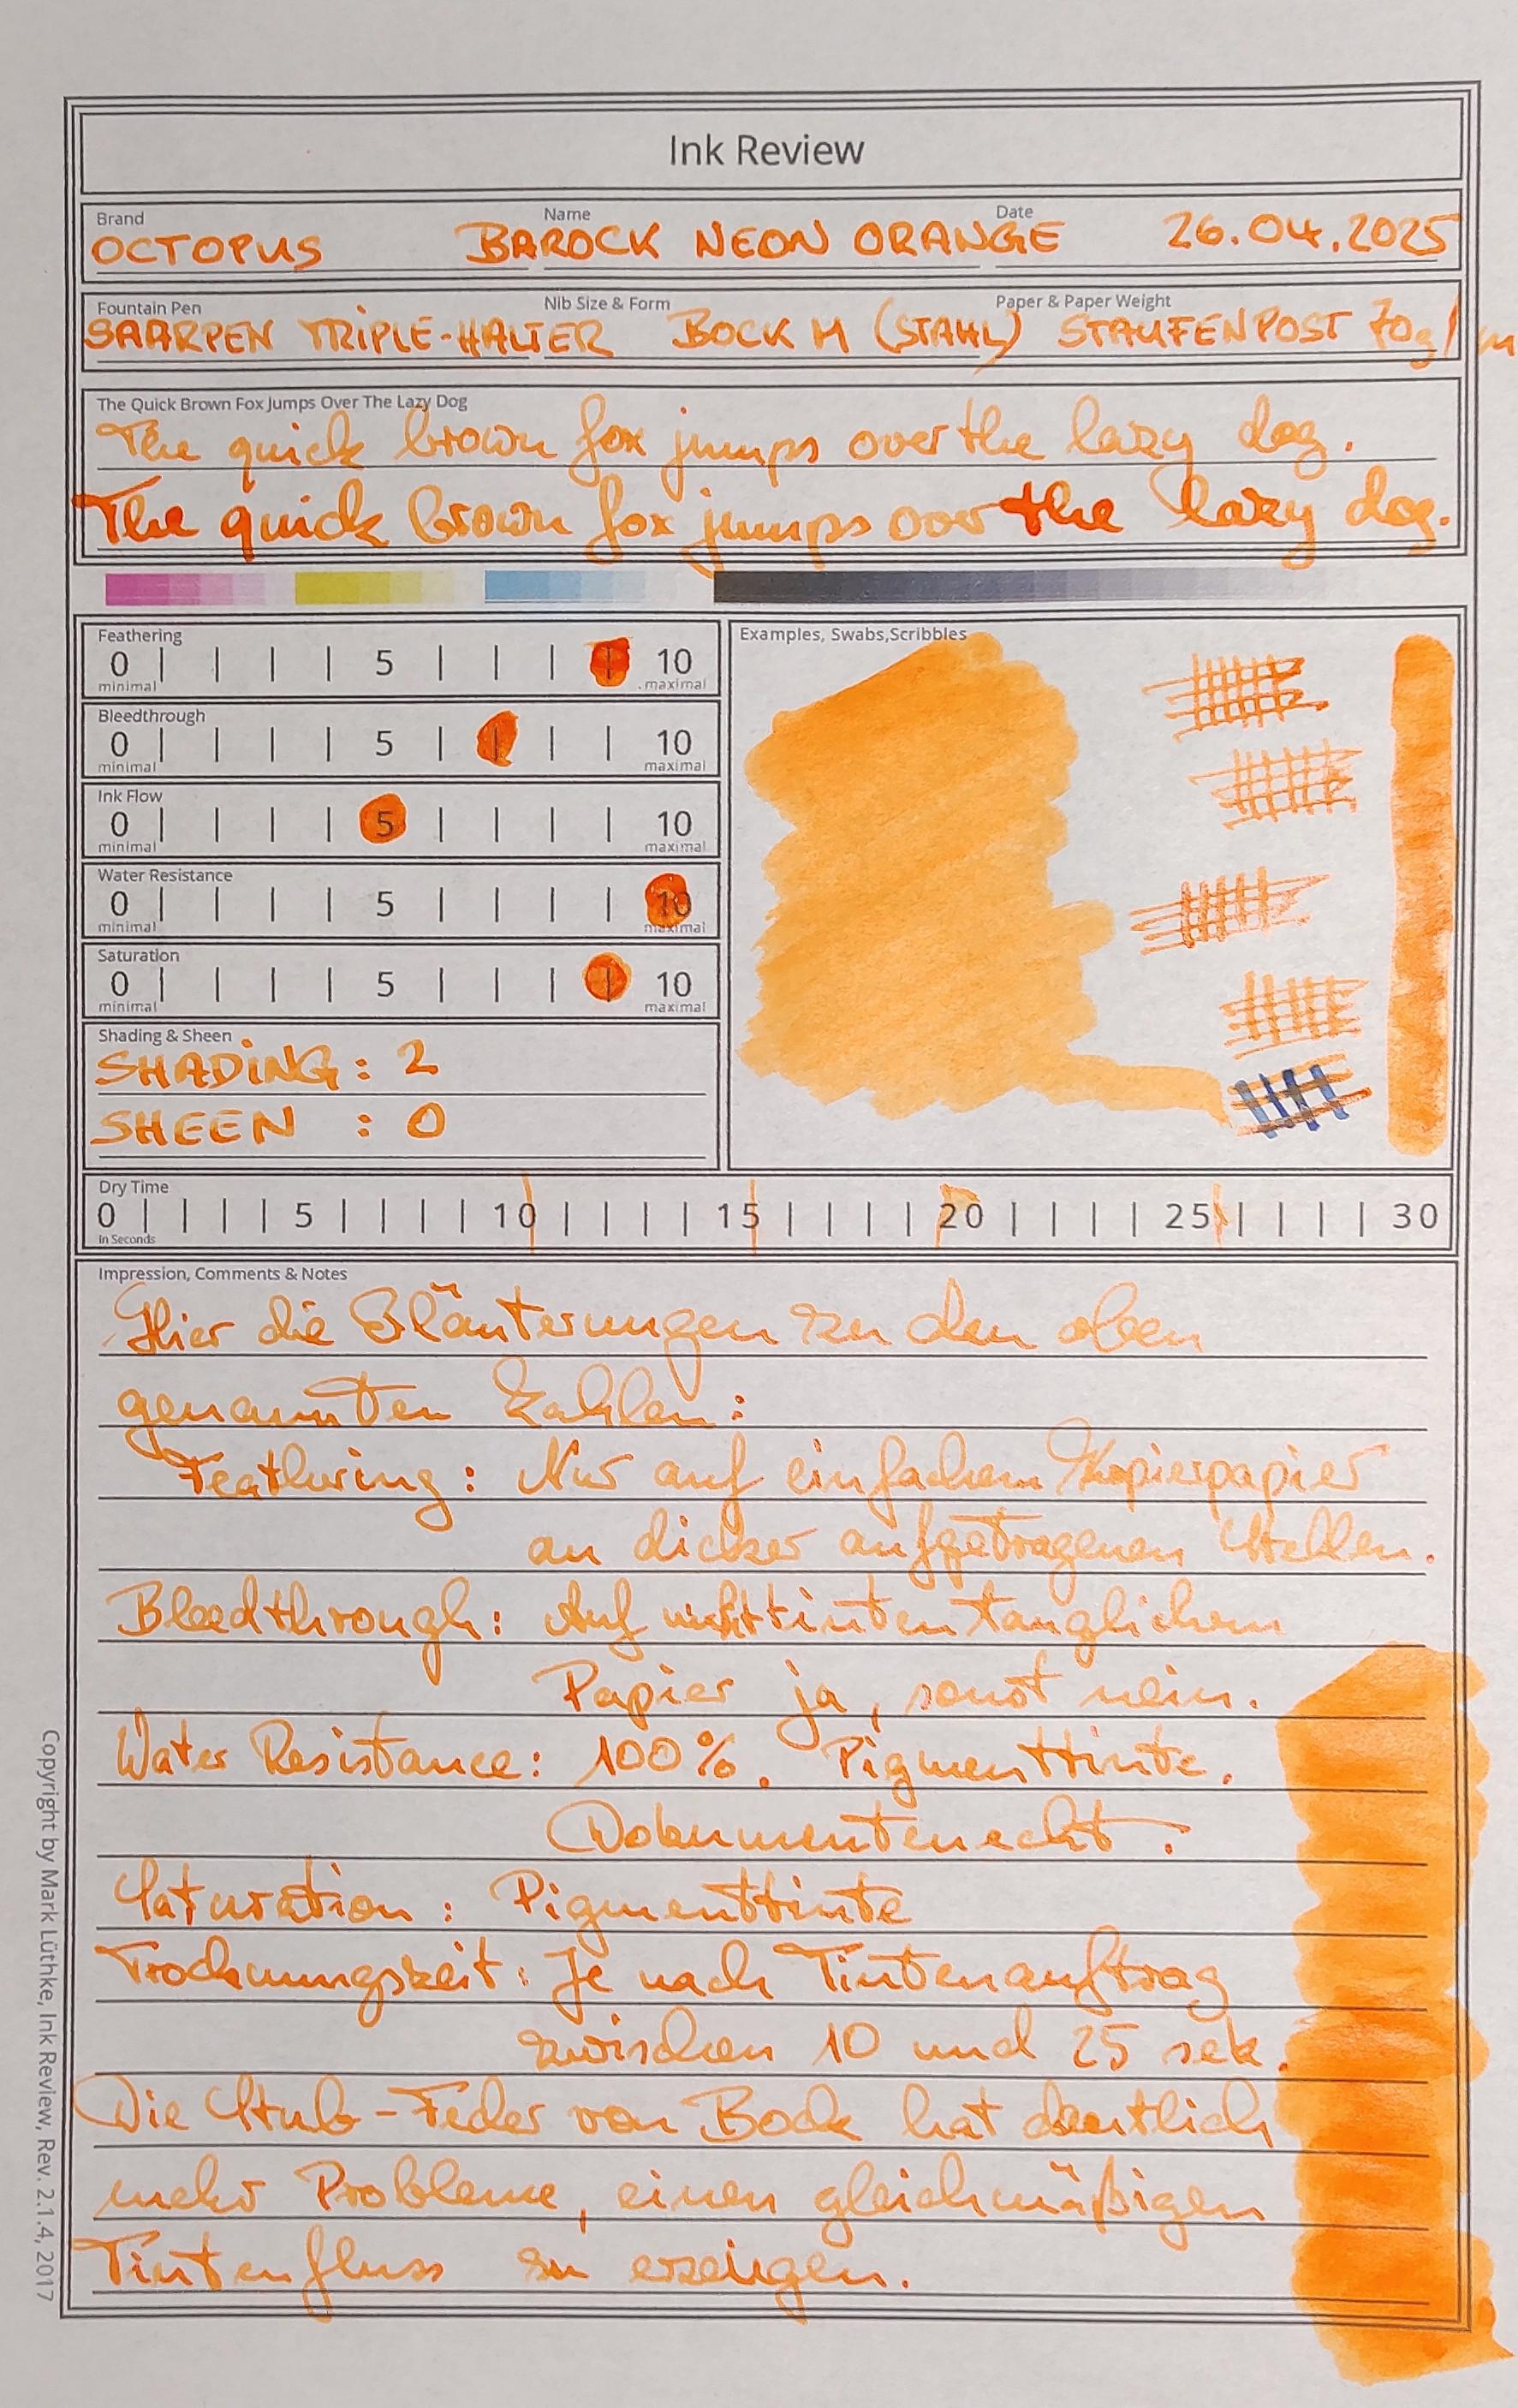 Ink Review
Brand Name Date
OCTOPUS BAROCK NEON ORANGE 26.04.2025
Fountain Pen Nib Size & Form Paper & Paper Weight
SAARPEN TRIPLE-HALTER BOCK M (STAHL) STAUFENPOST 70g/m
The Quick Brown Fox Jumps Over The Lazy Dog
The quick brown fox jumps over the lazy dog.
The quick brown fox jumps over the lazy dog.
Feathering
0 | | | | 5 | | | | 10
minimal maximal
Bleedthrough
0 | | | | 5 | | | | 10
minimal maximal
Ink Flow
0 | | | | 5 | | | | 10
minimal maximal
Water Resistance
0 | | | | 5 | | | | 10
minimal maximal
Saturation
0 | | | | 5 | | | | 10
minimal maximal
Shading & Sheen
SHADING: 2
SHEEN : 0
Examples, Swabs,Scribbles
Dry Time
0 | | | | 5 | | | | 10 | | | | 15 | | | | 20 | | | | 25 | | | | 30
In Seconds
Impression, Comments & Notes
Hier die Erläuterungen zu den oben
genannten Zahlen:
Feathering: Nur auf einfachem Kopierpapier
an dicker aufgetragenen Stellen.
Bleedthrough: Auf nichttintentauglichem
Papier ja, sonst nein.
Water Resistance: 100%. Pigmenttinte.
Dokumentenecht.
Saturation: Pigmenttinte
Trocknungszeit: Je nach Tintenauftrag
zwischen 10 und 25 sek.
Die Stub-Feder von Bock hat deutlich
mehr Probleme, einen gleichmäßigen
Tintenfluss zu erzeugen.
Copyright by Mark Lüthke, Ink Review, Rev. 2.1.4, 2017